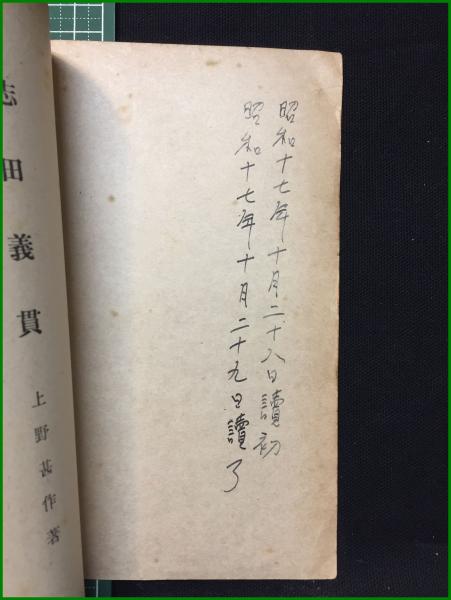 昭和十七年十月二十八日讀初
昭和十七年十月二十九日讀了
志田義貫
上野甚作著